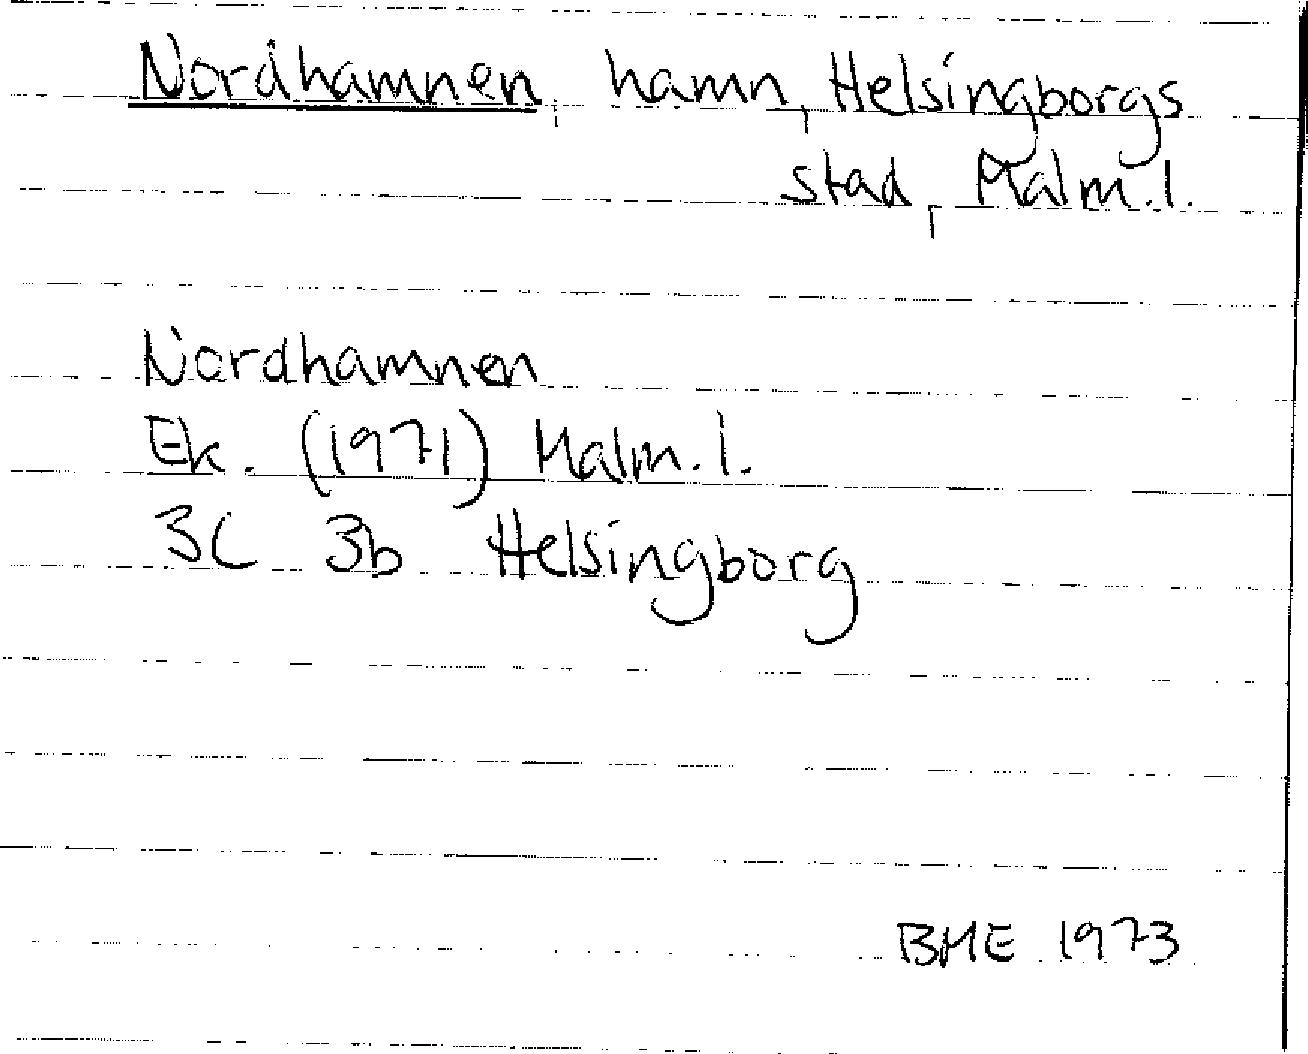 Nordhamnen, hamn, Helsingborgs
stad, Malm.l.
Nordhamnen
Ek. (1971) Malm.l.
3C 3b Helsingborg
BME 1973